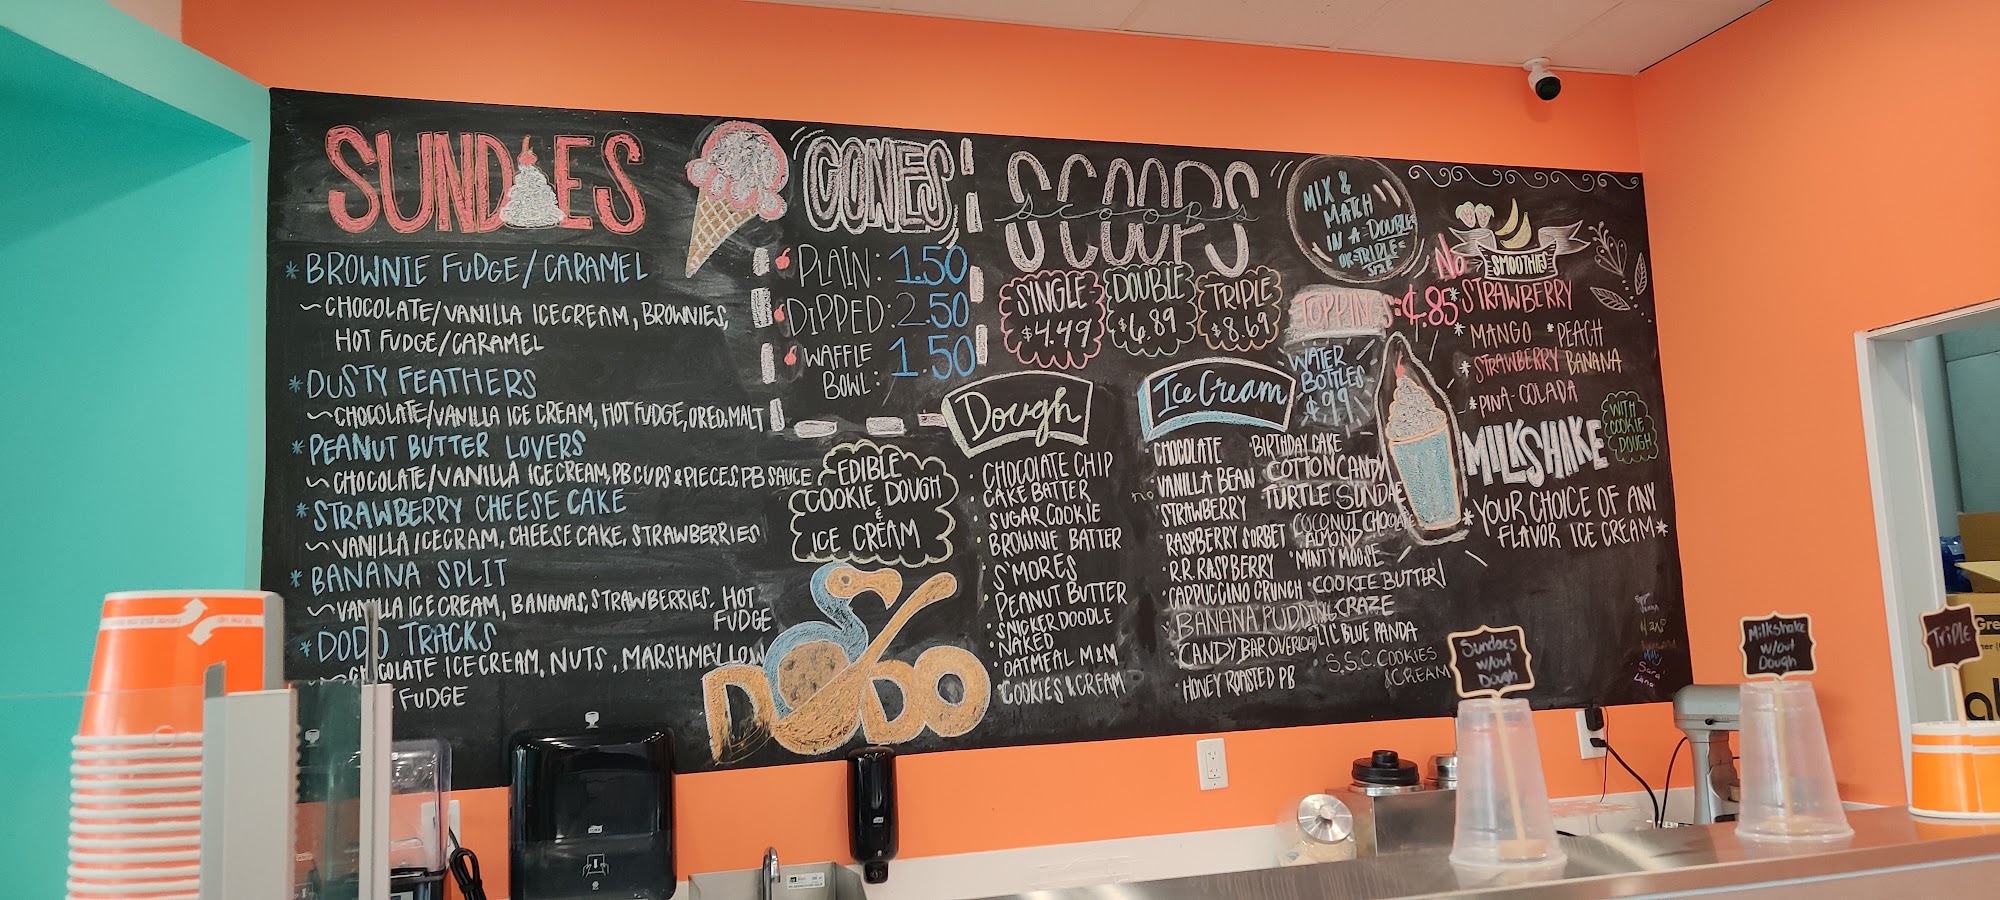 SUNDAES
* BROWNIE FUDGE/CARAMEL
~ CHOCOLATE/VANILLA ICECREAM, BROWNIES,
HOT FUDGE/CARAMEL
* DUSTY FEATHERS
~ CHOCOLATE/VANILLA ICE CREAM, HOT FUDGE, OREO, MALT
* PEANUT BUTTER LOVERS
~ CHOCOLATE/VANILLA ICECREAM, PB CUPS & PIECES, PB SAUCE
* STRAWBERRY CHEESE CAKE
~ VANILLA ICECRAM, CHEESE CAKE, STRAWBERRIES
* BANANA SPLIT
~ VANILLA ICE CREAM, BANANAS, STRAWBERRIES, HOT
FUDGE
* DODO TRACKS
~ CHOCOLATE ICE CREAM, NUTS, MARSHMALLOW
FUDGE
CONES
PLAIN: 1.50
DIPPED: 2.50
WAFFLE
BOWL: 1.50
EDIBLE
COOKIE DOUGH
&
ICE CREAM
DODO
SCOOPS
scoops
SINGLE
$4.49
DOUBLE
$6.89
TRIPLE
$8.69
MIX &
MATCH
IN A DOUBLE
OR TRIPLE
SIZE
TOPPINGS: ¢.85
WATER
BOTTLES
$.99
Dough
CHOCOLATE CHIP
CAKE BATTER
SUGAR COOKIE
BROWNIE BATTER
S'MORES
PEANUT BUTTER
SNICKERDOODLE
NAKED
OATMEAL M&M
COOKIES & CREAM
Ice Cream
CHOCOLATE
no VANILLA BEAN
STRAWBERRY
RASPBERRY SORBET
R.R. RASPBERRY
CAPPUCCINO CRUNCH
BANANA PUDDING
CANDY BAR OVERLOAD
HONEY ROASTED PB
BIRTHDAY CAKE
COTTON CANDY
TURTLE SUNDAE
COCONUT CHOCOLATE
ALMOND
MINTY MOOSE
COOKIE BUTTER
CRAZE
LTC BLUE PANDA
S.S.C. COOKIES
& CREAM
No
SMOOTHIES
* STRAWBERRY
* MANGO * PEACH
* STRAWBERRY BANANA
* PINA-COLADA
MILKSHAKE
WITH
COOKIE
DOUGH
* YOUR CHOICE OF ANY
FLAVOR ICE CREAM *
Sundaes
w/out
Dough
Milkshake
w/out
Dough
TRIPLE